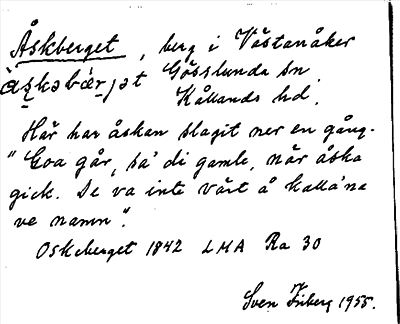 Åskberget, berg i Västanåker
Gösslunda sn
Kållands hd.
Här har åskan slagit ner en gång.
"Goa går, sa' di gamle, när åska
gick. De va inte värt å kalla'na
ve namn".
Oskeberget 1842 LMA Ra 30
Sven Friberg 1955.